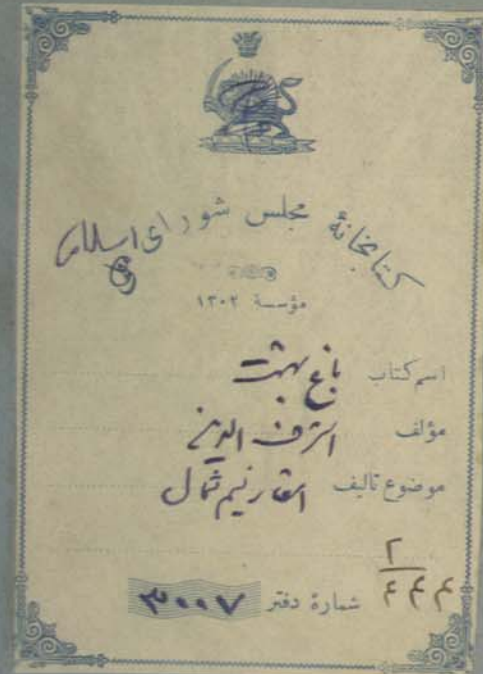 کتابخانهٔ مجلس شورای اسلامی
مؤسسهٔ ۱۳۰۲
اسم کتاب باغ بهشت
مؤلف اشرف الدین
موضوع تالیف اشعار نسیم شمال
۲
۴۴۴
شمارهٔ دفتر ۳۰۰۷